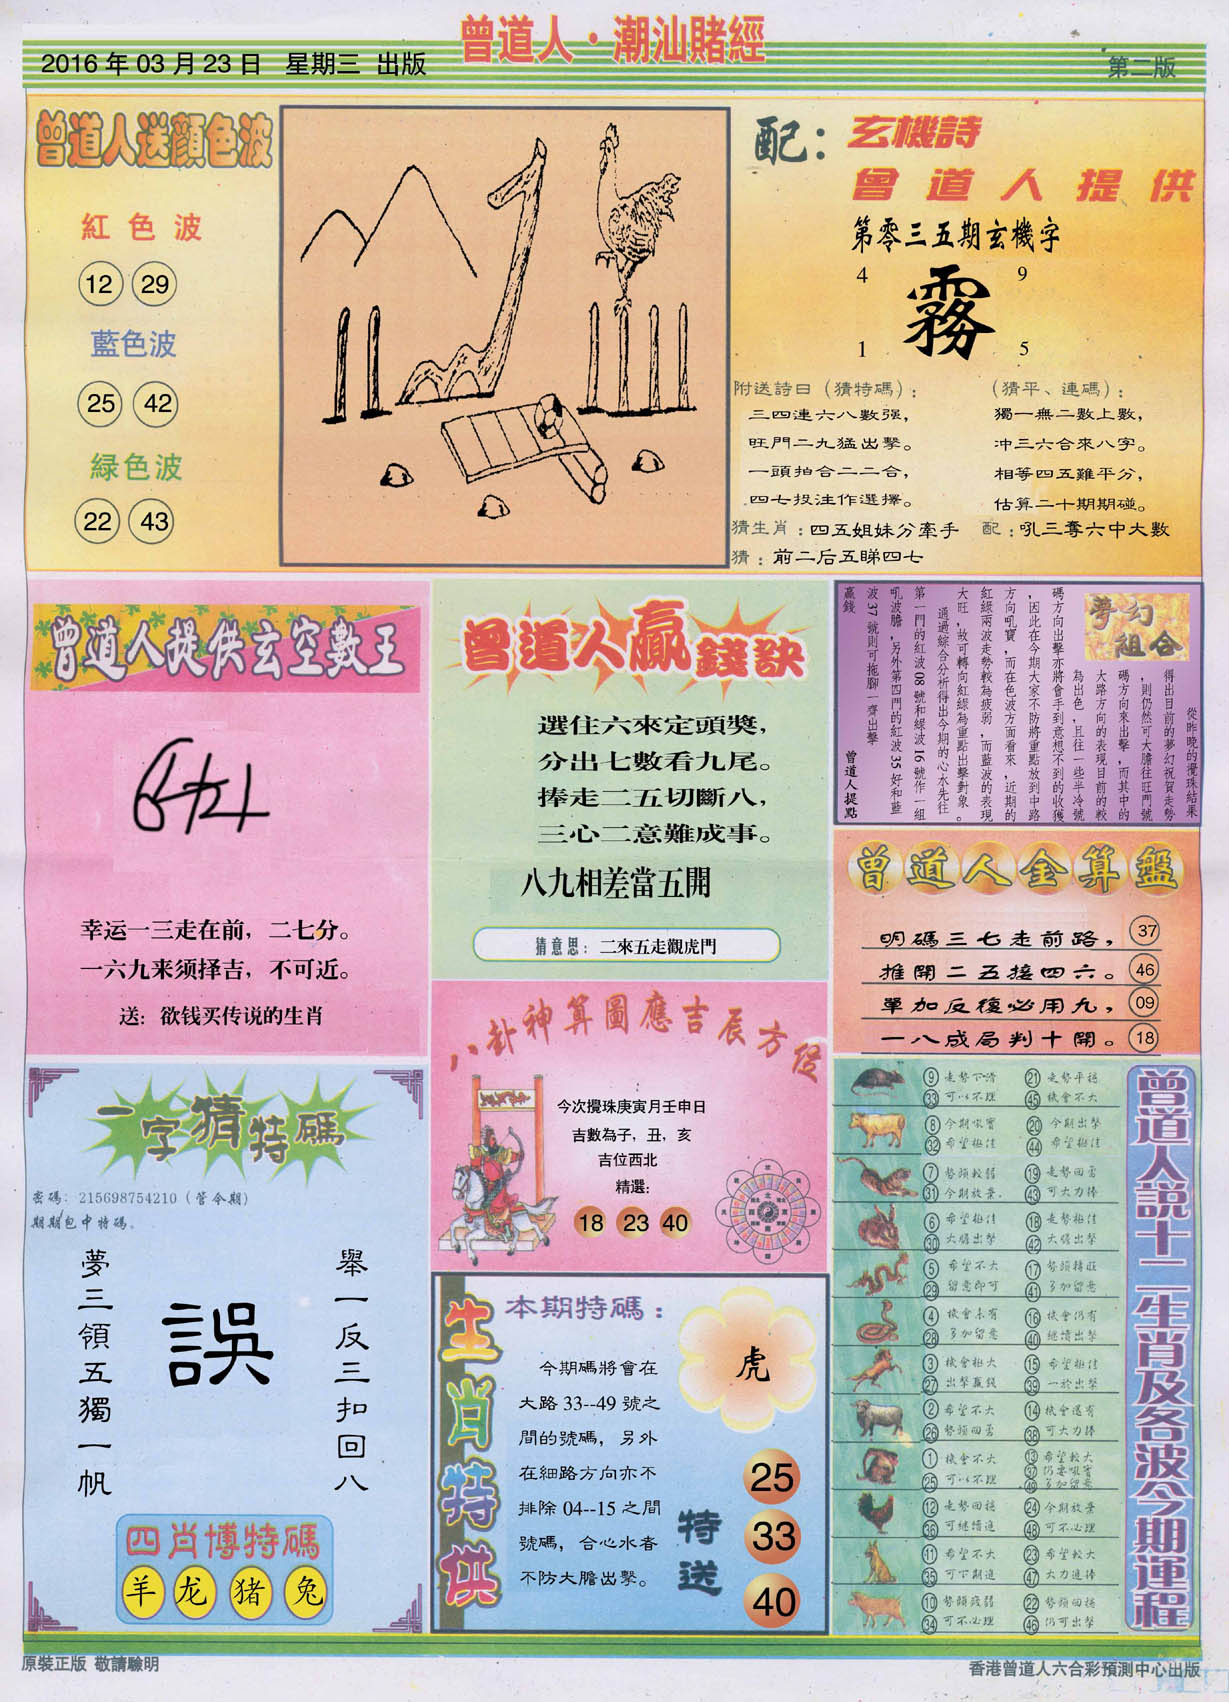 曾道人·潮汕賭經
2016年03月23日 星期三 出版
第二版
曾道人送顏色波
紅色波
12 29
藍色波
25 42
緑色波
22 43
配：玄機詩
曾道人提供
第零三五期玄機字
4 9
霧
1 5
附送詩曰（猜特碼）：
三四連六八數强，
旺門二九猛出擊。
一頭拍合二二合，
四七投注作選擇。
（猜平、連碼）：
獨一無二數上數，
冲三六合來八字。
相等四五難平分，
估算二十期期碰。
猜生肖：四五姐妹分牽手
配：吼三奪六中大數
猜：前二后五睇四七
曾道人提供玄空數王
幸运一三走在前，二七分。
一六九来须择吉，不可近。
送：欲钱买传说的生肖
曾道人贏錢訣
選住六來定頭獎，
分出七數看九尾。
捧走二五切斷八，
三心二意難成事。
八九相差當五開
猜意思：二來五走觀虎門
夢幻組合
從昨晚的攪珠結果
得出目前的夢幻祝賀走勢
，則仍然可大膽往旺門號
碼方向來出擊，而其中的
大路方向的表現目前的較
為出色，且往一些半冷號
碼方向出擊亦將會手到意想不到的收獲
，因此在今期大家不防將重點放到中路
方向吼寶，而在色波方面看來，近期的
紅綠兩波走勢較為疲弱，而藍波的表現
大旺，故可轉向紅綠為重點出擊對象。
通過綜合分析得出今期的心水先往
第一門的紅波08號和綠波16號作一組
吼波膽，另外第四門的紅波35好和藍
波37號則可拖腳一齊出擊
贏錢
曾道人提點
曾道人金算盤
明碼三七走前路， 37
推開二五接四六。 46
單加反復必用九， 09
一八成局判十開。 18
八卦神算圖應吉辰方位
今次攪珠庚寅月壬申日
吉數為子，丑，亥
吉位西北
精選：
18 23 40
一字猜特碼
密碼：215698754210（管今期）
期期包中特碼。
舉一反三扣回八
誤
夢三領五獨一帆
四肖博特碼
羊 龙 猪 兔
生肖特供
本期特碼：
虎
今期碼將會在
大路33--49號之
間的號碼，另外
在細路方向亦不
排除04--15之間
號碼，合心水者
不防大膽出擊。
特送
25
33
40
曾道人說十二生肖及各波今期運程
9 走勢下滑 21 走勢平穩
33 可以不理 45 機會不大
8 今期吼寶 20 今期出擊
32 希望極佳 44 希望極佳
7 勢頭較弱 19 走勢回勇
31 今期放棄. 43 可大力捧
6 希望極佳 18 走勢極佳
30 大膽出擊 42 大膽出擊
5 希望不大 17 勢頭轉旺
29 留意即可 41 多加留意
4 機會未有 16 機會仍有
28 多加留意 40 繼續出擊
3 機會極大 15 希望極佳
27 出擊贏錢 39 一於出擊
2 希望不大 14 機會還有
26 勢頭回勇 38 可大力捧
1 機會不大 13 希望較大
25 可以不理 37 仍要吼寶
49 多加留意
12 走勢回穩 24 今期放棄
36 可繼續追 48 可不必理
11 希望不大 23 希望較大
35 可下期追 47 大力追捧
10 勢頭疲弱 22 勢頭回穩
34 可不必理 46 仍可出擊
原裝正版 敬請驗明
香港曾道人六合彩預測中心出版